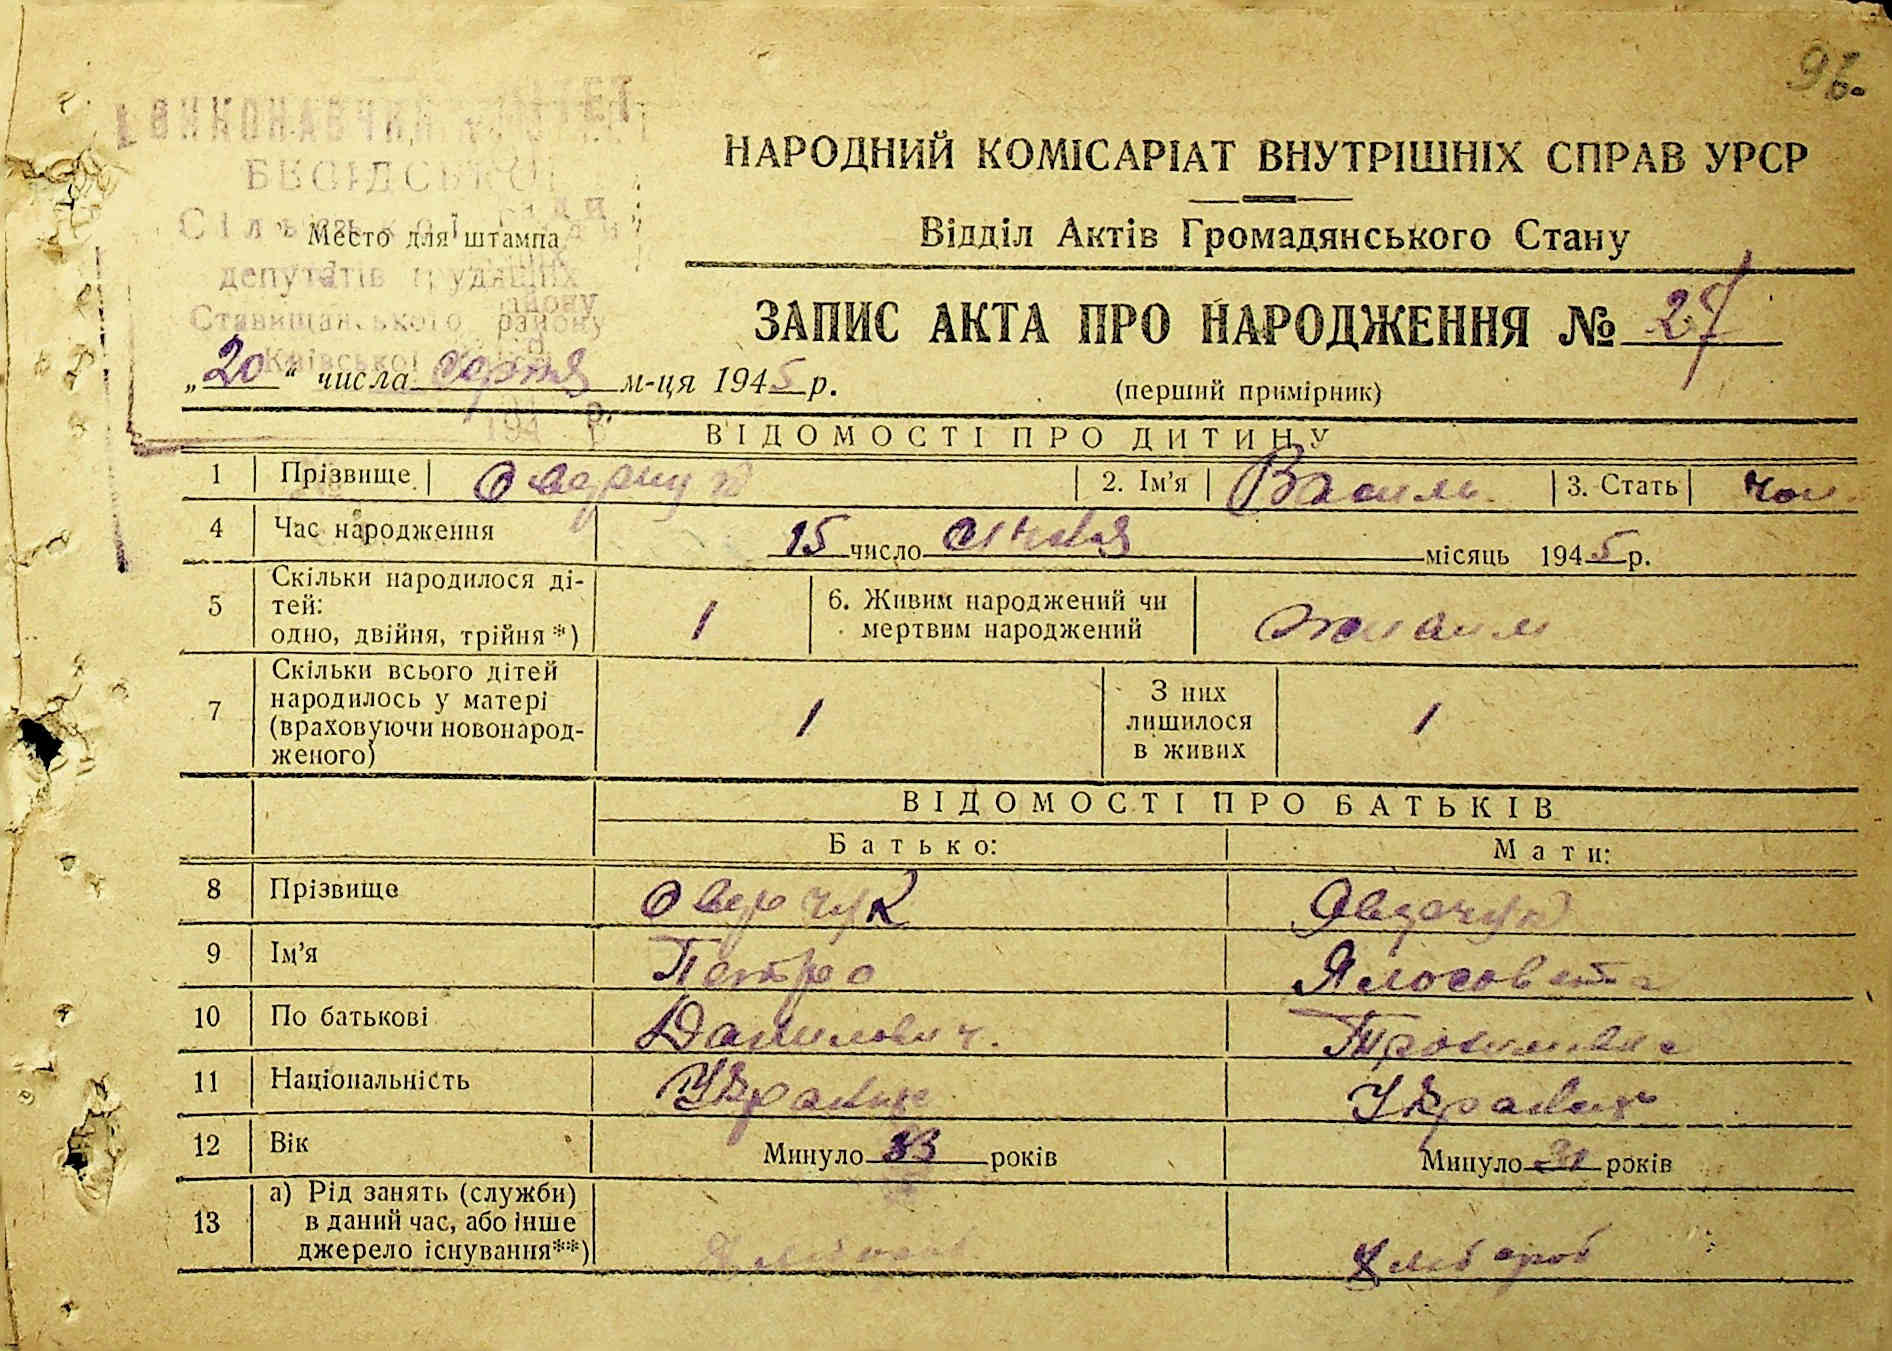 96.
ВИКОНАВЧИЙ
БЕСІДСЬКОЇ
Сільської ради
депутатів трудящих
Ставищанського району
Київської
194 р.
Место для штампа
НАРОДНИЙ КОМІСАРІАТ ВНУТРІШНІХ СПРАВ УРСР
Відділ Актів Громадянського Стану
ЗАПИС АКТА ПРО НАРОДЖЕННЯ № 27
„20“ числа серпня м-ця 1945 р.
(перший примірник)
ВІДОМОСТІ ПРО ДИТИНУ
1 Прізвище 2. Ім’я Василь 3. Стать чол.
4 Час народження 15 число січня місяць 1945 р.
5 Скільки народилося ді-
тей:
одно, двійня, трійня*) 1 6. Живим народжений чи
мертвим народжений живим
7 Скільки всього дітей
народилось у матері
(враховуючи новонарод-
женого) 1 З них
лишилося
в живих 1
ВІДОМОСТІ ПРО БАТЬКІВ
Батько: Мати:
8 Прізвище
9 Ім’я Петро
10 По батькові Данилович.
11 Національність
12 Вік Минуло 33 років Минуло 31 років
13 а) Рід занять (служби)
в даний час, або інше
джерело існування**) хлібороб